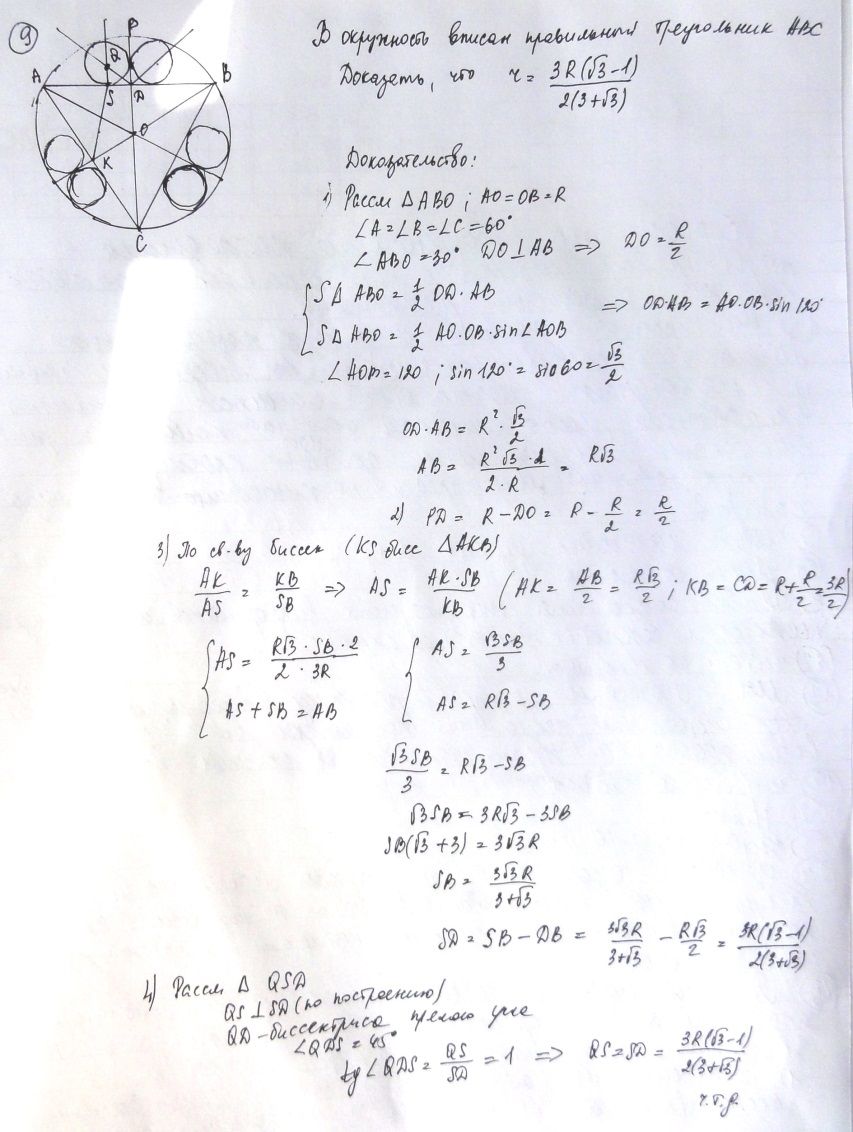 9
P
Q
A
B
S
D
O
K
C
В окружность вписан правильный треугольник ABC
Доказать, что r = 3R(√3-1) / 2(3+√3)
Доказательство:
1) Рассм ΔABO ; AO=OB=R
∠A=∠B=∠C=60°
∠ABO=30° DO⊥AB ⇒ DO = R/2
{ SΔ ABO = 1/2 OD·AB ⇒ OD·AB = AO·OB·sin 120°
SΔ ABO = 1/2 AO·OB·sin∠AOB
; sin 120° = sin 60 = √3/2
OD·AB = R²·√3/2
AB = R²√3·2 / 2·R = R√3
2) PD = R-DO = R - R/2 = R/2
3) По св-ву биссек (KS бисс ΔAKB)
AK/AS = KB/SB ⇒ AS = AK·SB/KB (AK = AB/2 = R√3/2 ; KB = CD = R+R/2=3R/2)
{ AS = R√3·SB·2 / 2·3R { AS = √3SB/3
AS+SB=AB AS = R√3-SB
√3SB/3 = R√3-SB
√3SB = 3R√3-3SB
SB(√3+3) = 3√3R
SB = 3√3R / 3+√3
SD = SB-DB = 3√3R/3+√3 - R√3/2 = 3R(√3-1)/2(3+√3)
4) Рассм Δ QSD
QS⊥SD (по построению)
QD-биссектриса прямого угла
∠QDS=45°
tg∠QDS = QS/SD = 1 ⇒ QS=SD = 3R(√3-1)/2(3+√3)
ч.т.д.